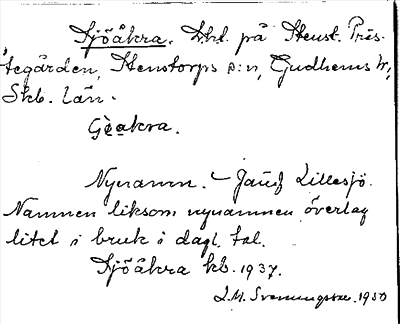 Sjöåkra. Lht. på Stenst. Präs-
tegården, Stenstorps s:n, Gudhems h.,
Skb. län.
Nynamn. – Jämf Lillesjö.
Namnen liksom nynamnen överlag
litet i bruk i dagl. tal.
Sjöåkra kb. 1937.
1950